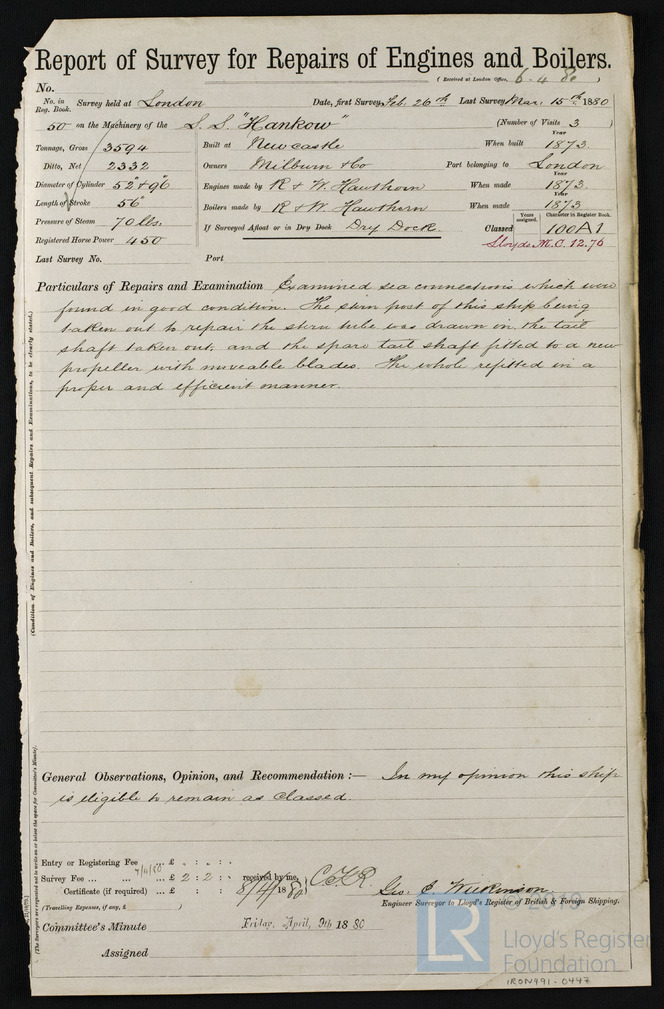 Report of Survey for Repairs of Engines and Boilers.
(Received at London Office, 6.4.80)
No.
No. in Reg. Book. Survey held at London Date, first Survey Feb. 26th Last Survey Mar. 15th 1880
50 on the Machinery of the S.S. "Hankow" (Number of Visits 3)
Tonnage, Gross 3594 Built at Newcastle When built Year 1873.
Ditto, Net 2332 Owners Milburn & Co Port belonging to London
Diameter of Cylinder 52" & 96" Engines made by R & W. Hawthorn When made Year 1873.
Length of Stroke 56" Boilers made by R & W. Hawthorn When made Year 1873
Pressure of Steam 70 lbs. If Surveyed Afloat or in Dry Dock Dry Dock. Classed Years assigned. Character in Register Book. 100A1
Registered Horse Power 450 Lloyds M.C. 12.76
Last Survey No. Port
Particulars of Repairs and Examination Examined sea connections which were
found in good condition. The stern post of this ship being
taken out to repair the stern tube was drawn in, the tail
shaft taken out, and the spare tail shaft fitted to a new
propeller with moveable blades. The whole refitted in a
proper and efficient manner.
(Condition of Engines and Boilers, and subsequent Repairs and Examinations, to be clearly stated.)
(The Surveyors are requested not to write on or below the space for Committee's Minute).
General Observations, Opinion, and Recommendation :— In my opinion this ship
is eligible to remain as Classed.
Entry or Registering Fee ... £ : :
7/4/80
Survey Fee ... ... ... £ 2 : 2 : received by me, C.F.R.
Certificate (if required) ... £ : : 8/4/1880
Geo. C. Wilkinson
(Travelling Expenses, if any, £ )
Engineer Surveyor to Lloyd's Register of British & Foreign Shipping.
Committee's Minute Friday, April, 9th 1880
Assigned
© 2019
LR
Lloyd's Register
Foundation
IRON491-0447